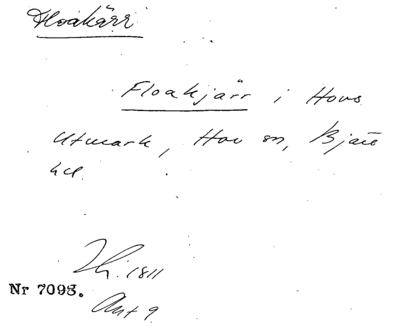 Floakärr
Floakjärr i Hovs
Utmark, Hov sn, Bjäre
hd.
1811
Nr 7093.
Akt 9